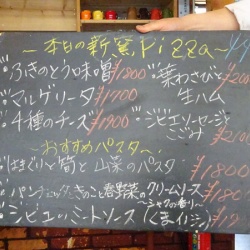 ～本日の新窯Pizza～
ふきのとう味噌 ¥1800
葉わさびと生ハム
マルゲリータ ¥1700
4種のチーズ ¥1900
ジビエソーセージ
ごごみ ¥210
～おすすめパスタ～
はまぐりと筍と山菜のパスタ ¥1800
パンチェッタときのこと春野菜のクリームソース ¥180
～シャクの香り～
ジビエミートソース(くまイノシシ) ¥17